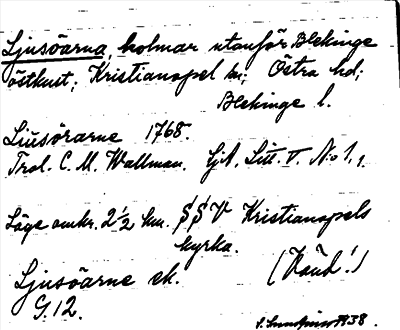 Ljusöarna, holmar utanför Blekinge
östkust; Kristianopel sn; Östra hd;
Blekinge l.
Ljusörarne 1768.
Trol. C. M. Wallman. Sjk. Litt. V. No 1.
Läge omkr. 2 1/2 km. SSV Kristianopels
kyrka.
Ljusöarne ek.
(Känd!)
G.12.
1938.